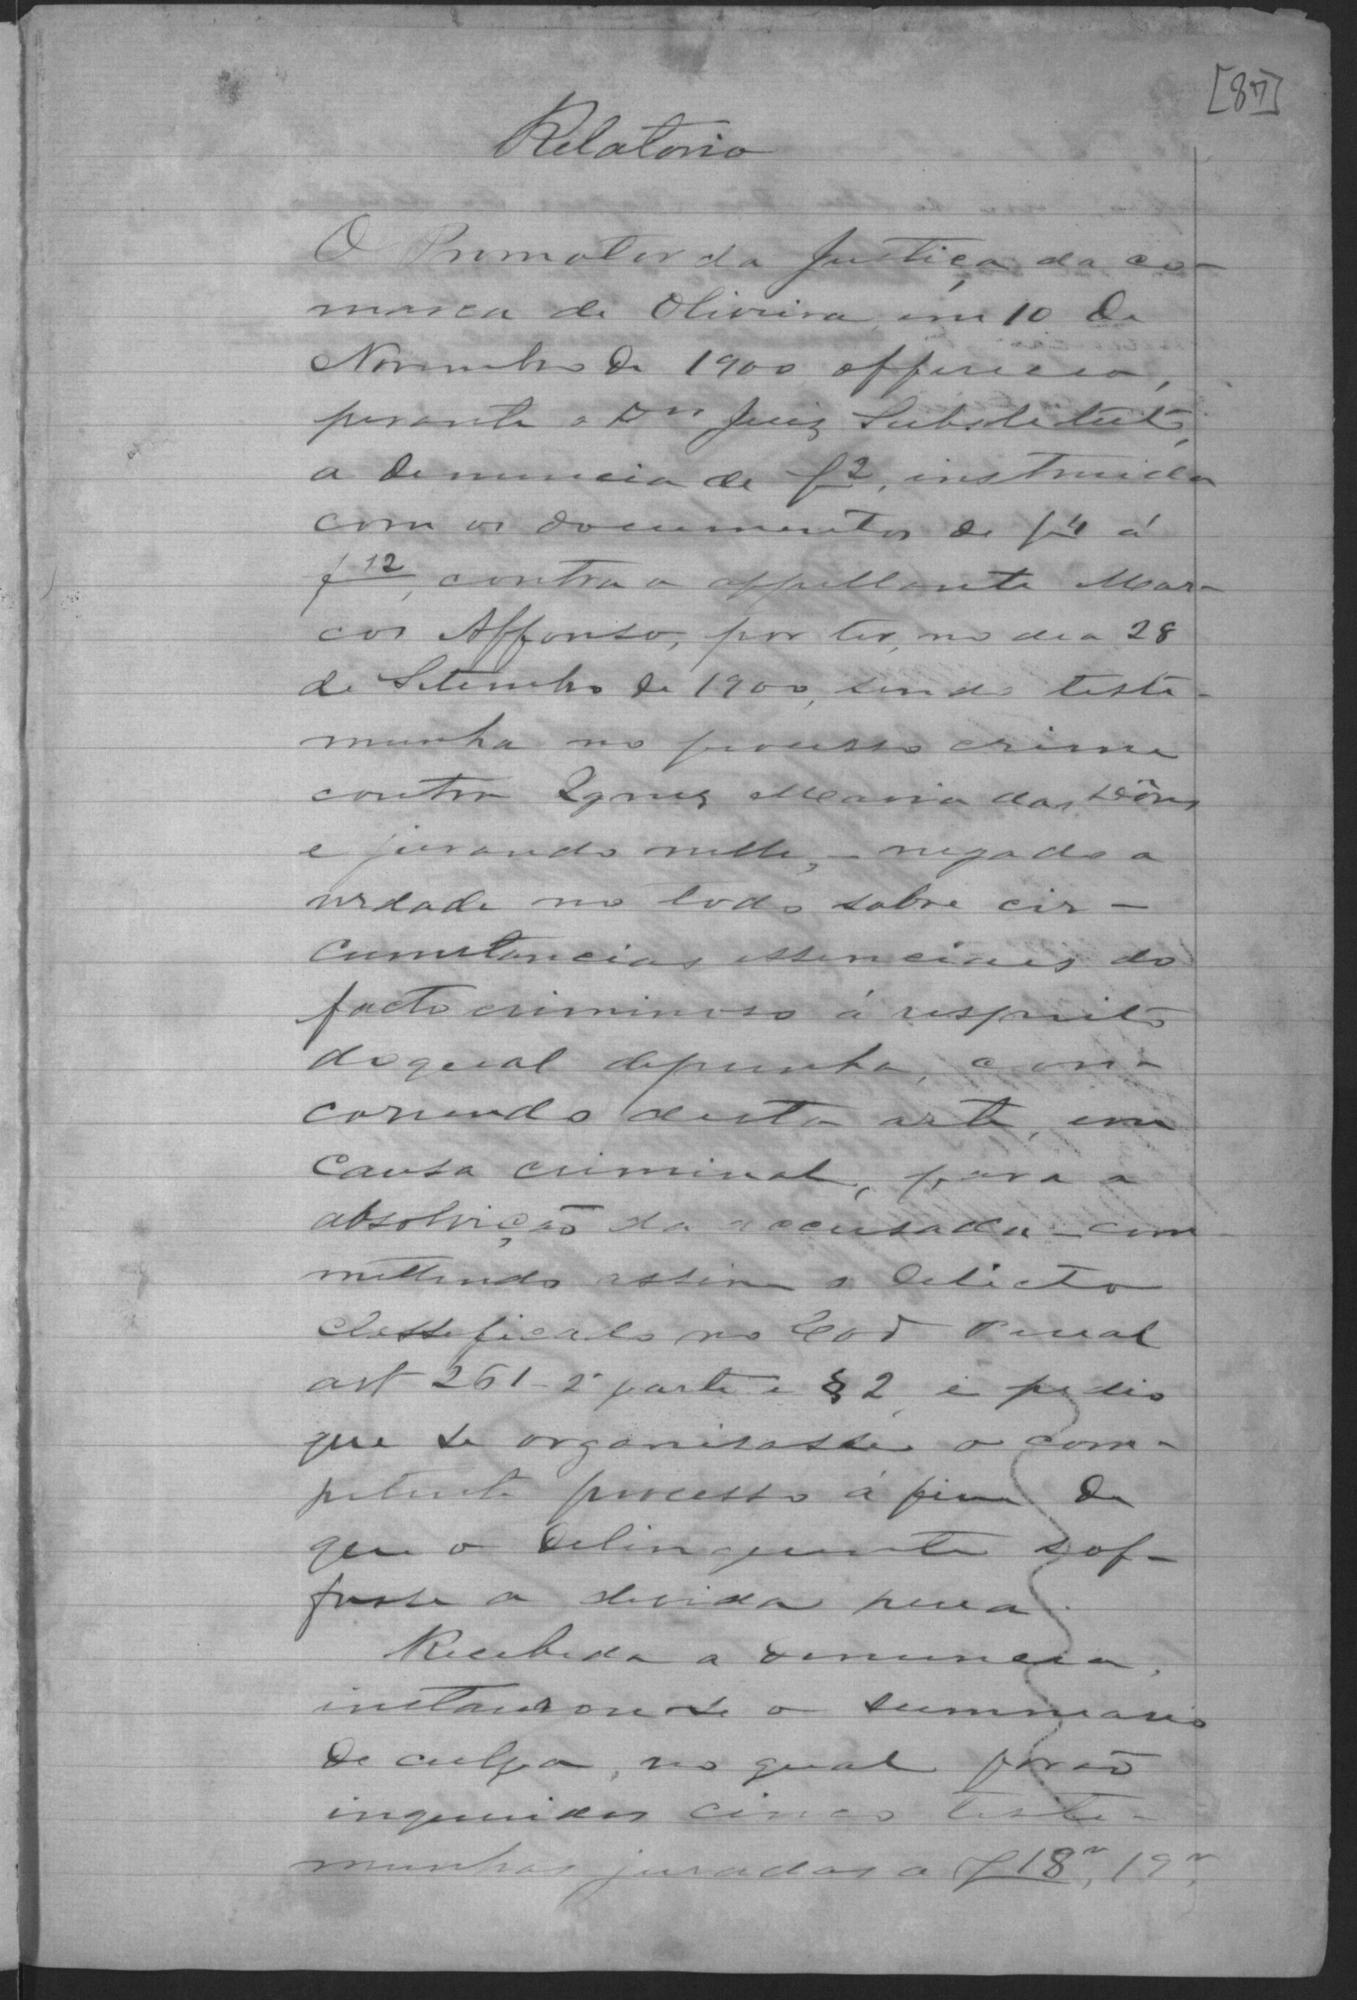 [87]
Relatorio
O Promotor da Justiça da co-
marca de Oliveira, em 10 de
Novembro de 1900 offereceu,
perante o Dr Juiz Substituto,
a denuncia de f 2, instruida
com os documentos de f 4 á
f 12, contra o appellante Mar-
cos Affonso, por ter, no dia 28
de Setembro de 1900, sendo teste-
munha no processo crime
contra Ignez Maria das Dôres
e jurando nelle, - negado a
verdade no todo sobre cir-
cumstancias essenciaes do
facto criminoso á respeito
do qual depunha, con-
correndo desta arte, em
causa criminal, para a
absolvição da accusada - com-
mettendo assim o delicto
classificado no Cod Penal
art 261 - 2ª parte e § 2, e pedio
que se organisasse o com-
petente processo á fim de
que o delinquente sof-
fresse a devida pena.
Recebida a denuncia,
instaurou-se o summario
de culpa, no qual forão
inqueridas cinco teste-
munhas juradas a f 18 v, 19 v,